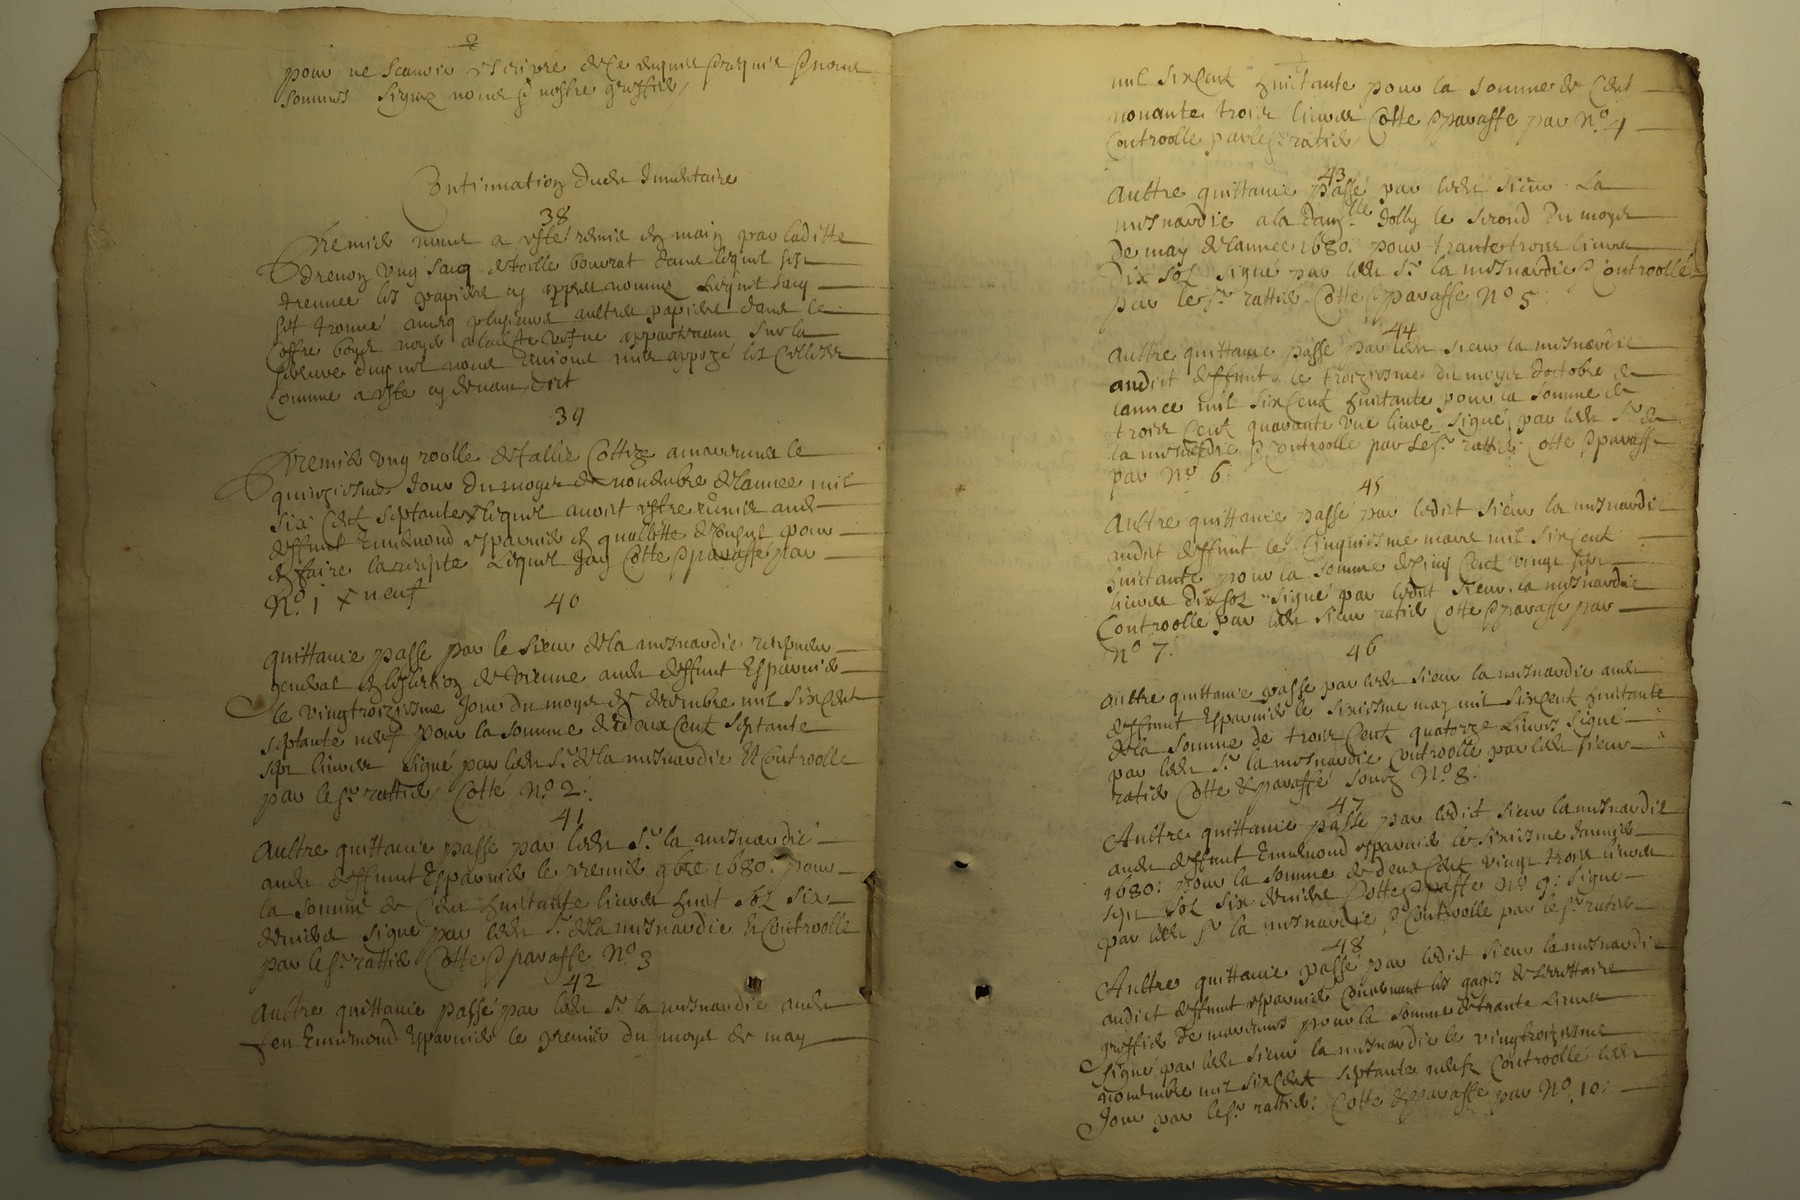 pour ne scavoir escripre de ce enquis &
sommes signez nous & nostre greffier
Continuation dudt Inventaire
38
Premier nous a esté remis en main par laditte
drevon ung sacq de toille dans lequel sest
treuvee les papiers cy appres nommes Lequel sacq
sest trouvé avecq plusieurs aultres papiers dans le
coffre boys noyer a laditte vefve appartenant sur la
duquel nous avions mis appozé les
comme a esté cy devant dict
39
Premier ung roolle de tallie Cottize a le
quinziesme Jour du moys de novembre de lannee mil
six cent septante x lequel avoit estre remis aud
deffunt Ennemond esparvier en quallitte de pour
en faire la Lequel Jay Cotte & paraffe par
No. 1 x neuf
40
quittance passe par le sieur de la misnardie
general en leslection de vienne audt deffunt Esparvier
le vingtroiziesme Jour du moys de decembre mil six Cent
septante neuf pour la somme de deux Cent septante
sept livres signé par ledt Sr. de la misnardie Et Controolle
par le Sr. rattier Cotté No. 2.
41
Aultre quittance passe par ledt Sr. la misnardie
audt deffunt Esparvier le premier 9bre 1680. pour
la somme de Cent huittante livres huit sol six
deniers signe par ledt Sr. de la misnardie Et Controolle
par le Sr. rattier Cotte & paraffe No. 3
42
Aultre quittance passé par ledt Sr. la misnardie audt
feu Ennemond Esparvier le premier du moys de may
mil six Cent huittante pour la somme de Cent
nonante trois livres Cotte & paraffe par No. 4
Controolle par le Sr. rattier
43
Aultre quittance passé par ledt sieur La
misnardie a la Damlle Jolly le second du moys
de may de lannee 1680. pour trante trois livres
dix sol signé par ledt Sr. la misnardie & Controollé
par le Sr. rattier Cotte & paraffe No 5
44
Aultre quittance passé par ledt sieur la misnardie
audict deffunt le troiziesme du moys doctobre de
lannee mil six Cent huittante pour la somme de
trois Cent quarante une livre signé par ledt Sr. de
la misnardie & Controolle par Le Sr. rattier Cotte & paraffe
par No. 6.
45
Aultre quittance passe par ledict sieur la misnardie
audict deffunt le Cinquiesme mars mil six Cent
huittante pour la somme de Cinq Cent vingt sept
livres dix sol signé par ledit sieur la misnardie
Controollé par ledt sieur ratier Cotte & paraffe par
No 7.
46
Aultre quittance passe par ledt sieur la misnardie audt
deffunt Esparvier le sixiesme may mil six Cent huittante
de la somme de trois Cent quatorze Livres signé
par ledt Sr. la misnardie Controolle par ledt sieur
ratier Cotte & paraffé soubz No. 8.
47
Aultre quittance passé par ledict sieur la misnardie
audt deffunt Ennemond esparvier le sixiesme Janvier
1680. pour la somme de deux Cent vingt trois livres
sept sol six deniers Cotte & paraffe No. 9. signé
par ledt Sr la misnardie & Controolle par le Sr. ratier
48
Aultre quittance passé par ledict sieur la misnardie
audict deffunt esparvier Concernant les gages de secrettaire
greffier de pour la somme de trante Livres
signé par ledt sieur la misnardie le vingtroiziesme
novembre mil six Cent septante neuf Controolle ledt
Jour par le Sr. rattier. Cotte & paraffe par No. 10.